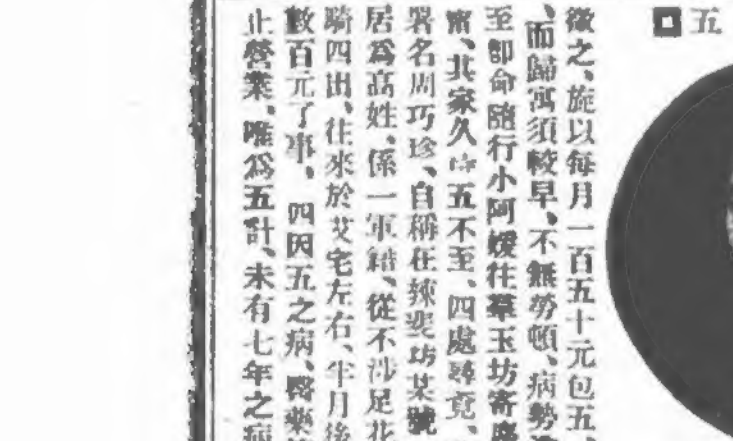 五
徵之、旋以每月一百五十元包五、
、而歸寓須較早、不無勞頓、病勢
至卽命隨行小阿媛往羣玉坊寄
甯、其家久待五不至、四處尋覓、
署名周巧珍、自稱在辣斐坊某號
居爲高姓、係一軍籍、從不涉足花
騎四出、往來於艾宅左右、半月後
數百元了事、四因五之病、醫藥
止營業、唯爲五計、未有七年之病